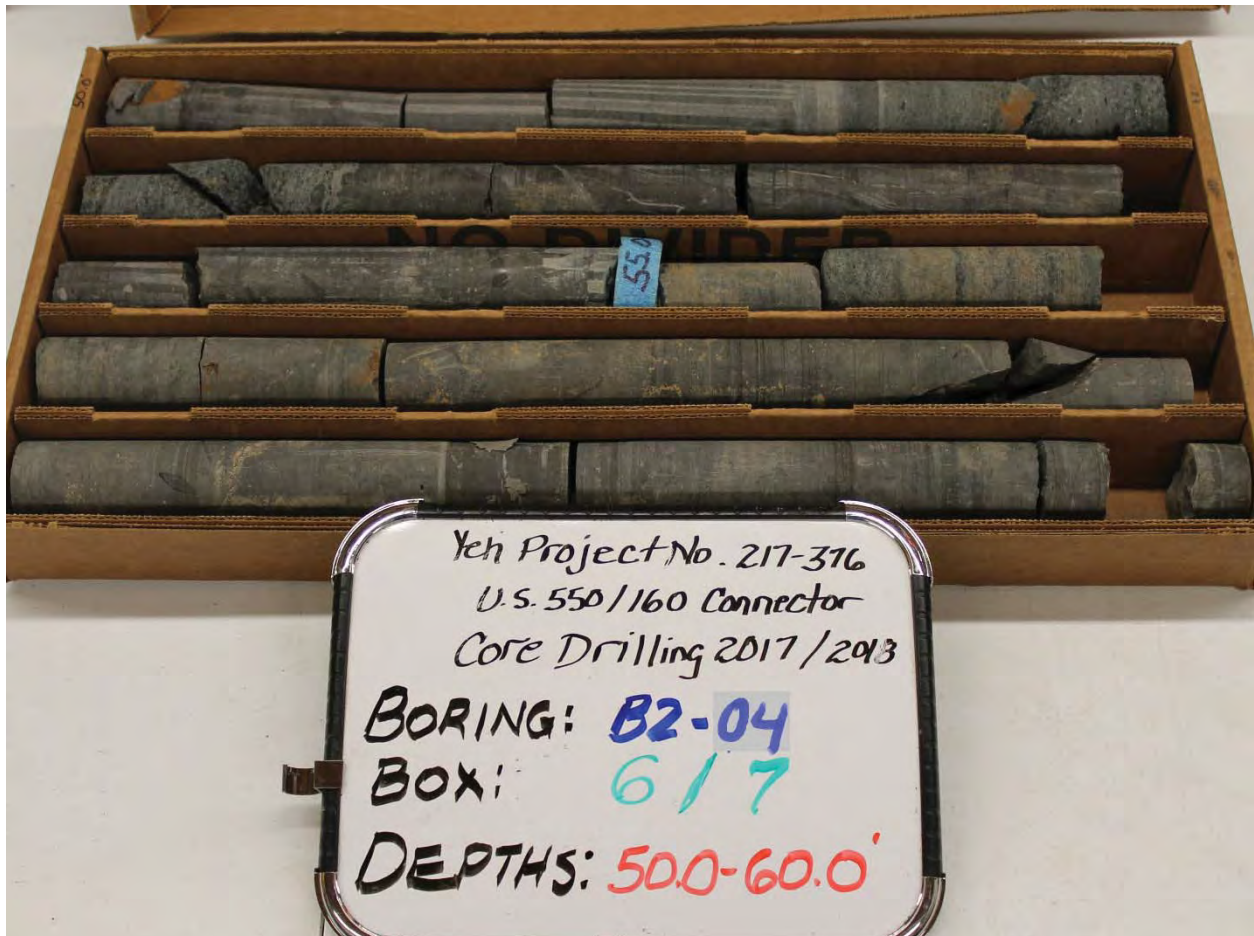 50.0'
NO DIVIDER
55.0
Yeh Project No. 217-376
U.S. 550/160 Connector
Core Drilling 2017/2018
BORING: B2-04
BOX: 6/7
DEPTHS: 50.0-60.0'